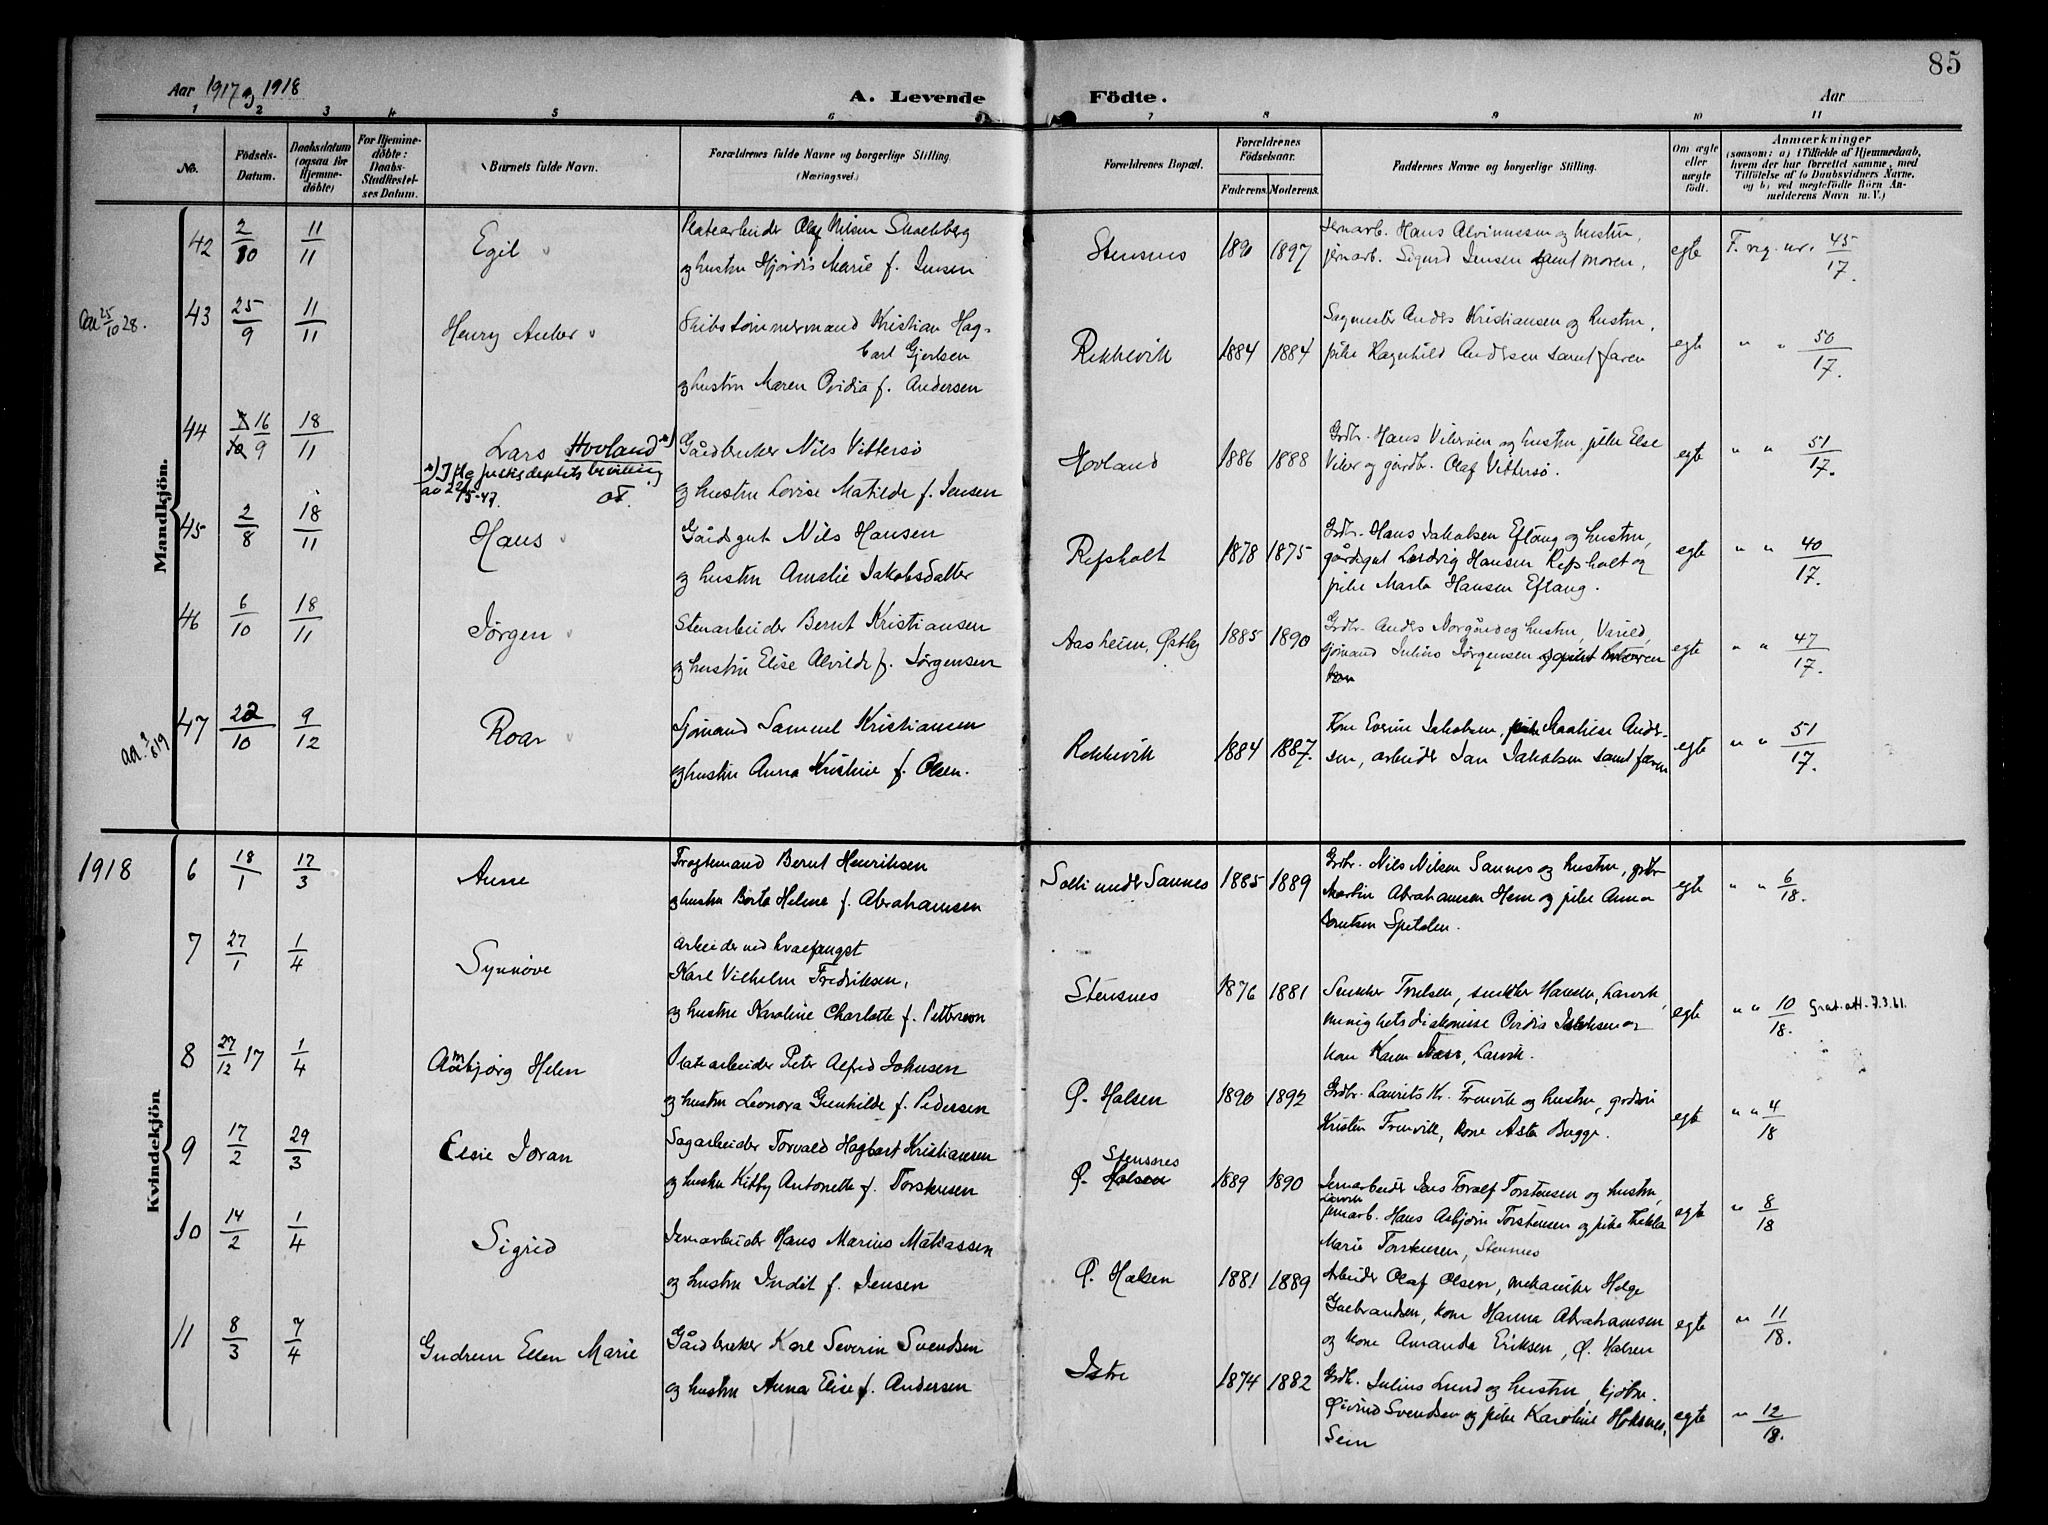 85
Aar 1917 og 1918
A. Levende Födte.
Aar
1 2 3 4 5 6 7 8 9 10 11
No.
Födsels-Datum.
Daabsdatum (ogsaa for Hjemmedöbte)
For Hjemmedöbte: Daabs-Stadfæstelses Datum.
Barnets fulde Navn.
Forældrenes fulde Navne og borgerlige Stilling. (Næringsvei.)
Forældrenes Bopæl.
Forældrenes Födselsaar.
Faderens. Moderens.
Faddernes Navne og borgerlige Stilling.
Om ægte eller uægte födt.
Anmærkninger
(saasom: a) i Tilfælde af Hjemmedaab, hvem der har forrettet samme, med Tilföielse af to Daabsvidners Navne, og b) ved uægtefödte Börn Anmelderens Navn m. V.)
Mandkjön.
42 2/10 11/11 Egil Platearbeider Olaf Nilsen
og hustru Hjördis Marie f. Jensen
Stensnes 1890 1897 Jernarb. Hans Alvinnesen og hustru,
jernarb. Sigurd Jensen samt moren.
egte F. reg. nr. 45/17.
25/10 28.
43 25/9 11/11 Henry Anker Skibstømmermand Kristian Hag-
bart Gjertsen
og hustru Maren Ovidia f. Andersen
Rekkevik 1884 1884 Sagmester Anders Kristiansen og hustru,
pike Ragnhild Andersen samt faren
egte " " 50/17.
44 16/9 18/11 Lars Hovland x) Gårdbruker Nils Vittersø
x) J.flg. justisdeptets bevilling
av 22/5-47.
og hustru Lovise Matilde f. Jensen
Hovland 1886 1888 Grdbr. Hans Vilerøen og hustru, pike Else
Viler og gårdbr. Olaf Vittersø.
egte " " 51/17.
45 2/8 18/11 Hans Gårdsgut Nils Hansen
og hustru Amalie Jakobsdatter
Refsholt 1878 1875 Grdbr. Hans Jakobsen Eftang og hustru,
gårdsgut Ludvig Hansen Refsholt og
pike Marta Hansen Eftang.
egte " " 40/17.
46 6/10 18/11 Jörgen Stenarbeider Bernt Kristiansen
og hustru Elise Alvilde f. Jørgensen
Aasheim, Østby 1885 1890 Grdbr. Anders Norgård og hustru, Varild,
sjømand Julius Jørgensen
egte " " 47/17.
47 22/10 9/12 Roar Sjømand Samuel Kristiansen
og hustru Anna Kristine f. Olsen.
Rekkevik 1884 1887. Kone Evine Jakobsen, Mathise Ander-
sen, arbeider Jan Jakobsen samt faren
egte " " 51/17.
1918
Kvindekjön
6 18/1 17/3 Anne Fragtemand Bernt Henriksen
og hustru Berta Helene f. Abrahamsen
Solli under Sannes 1885 1889 Grdbr. Nils Nilsen Sannes og hustru, grdbr.
Martin Abrahamsen Hem og pike Anna
Berntsen Spitalen.
egte " " 6/18.
7 27/1 1/4 Synnøve Arbeider ved hvalfangst
Karl Vilhelm Fredriksen,
og hustru Karoline Charlotte f. Petterson
Stensnes 1876 1881 Snekker Torelsen, snekker Hansen, Larvik,
menighetsdiakonisse Ovidia Isaksen og
kone Karen Næss, Larvik.
egte " " 10/18. 7.3.61.
8 27/12 17 1/4 Aambjørg Helen Platearbeider Peter Alfred Johnsen
og hustru Leonora Gunhilde f. Pedersen
Ø. Halsen 1890 1892 Grdbr. Laurits Kr. Freuvik og hustru,
Kristen Freuvik, kone Asta Bugge.
egte " " 4/18
9 17/2 29/3 Elsie Joran Sagarbeider Torvald Hagbart Kristiansen
og hustru Kitty Antonette f. Torstensen
Stensnes
Ø. Halsen 1889 1890 Jernarbeider Jens Toralf Torstensen og hustru,
Larvik
jernarb. Hans Asbjørn Torstensen og pike Thekla
Marie Torstensen, Stensnes
egte " 8/18
10 14/2 1/4 Sigrid Jernarbeider Hans Marius Matiassen
og hustru Indit f. Jensen
Ø. Halsen 1881 1889 Arbeider Olaf Olsen, mekaniker Helge
Gulbrandsen, kone Hanna Abrahamsen
og kone Amanda Eriksen, Ø. Halsen
egte " 11/18.
11 8/3 7/4 Gudrun Ellen Marie Gårdbruker Karl Severin Svendsen
og hustru Anna Elise f. Andersen
Istre 1874 1882 Grdb. Julius Lund og hustru,
Øivind Svendsen og pike Karoline
Sem
egte " 12/18.